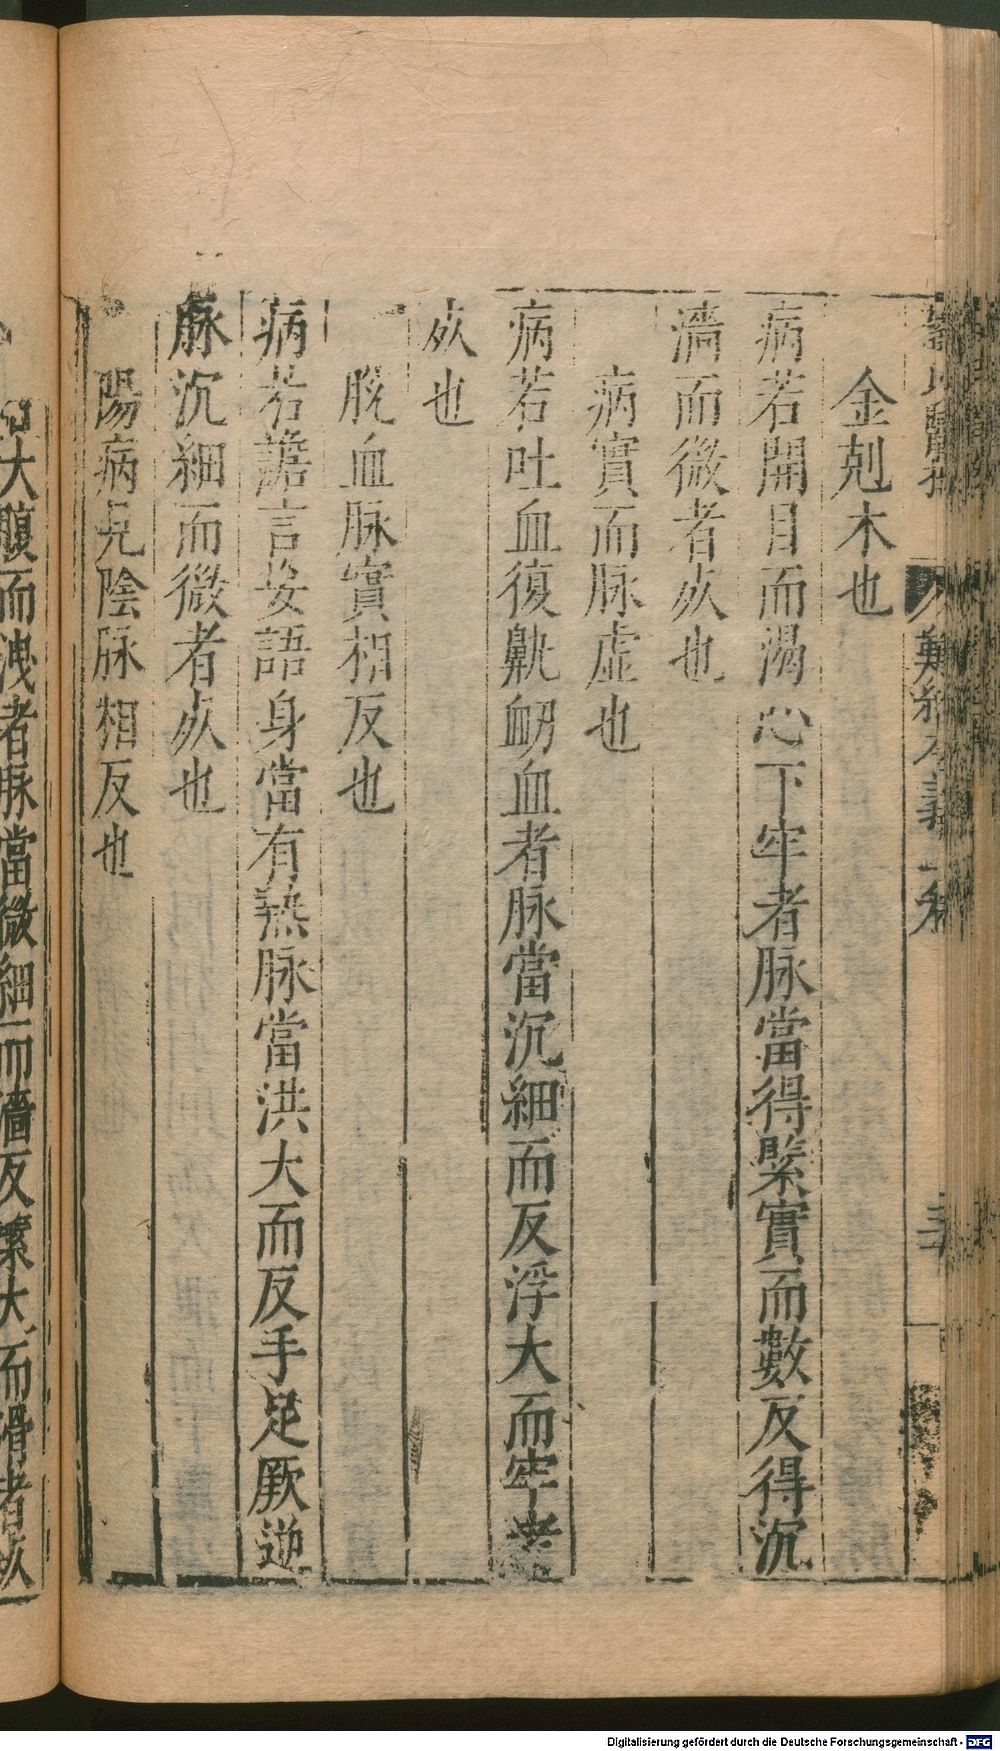 難經本義上卷
金剋木也
病若開目而渴心下牢者脉當得緊實而數反得沉
濇而微者死也
病實而脉虛也
病若吐血復鼽衂血者脉當沉細而反浮大而牢者
死也
脫血脉實相反也
病若譫言妄語身當有熱脉當洪大而反手足厥逆
脉沉細而微者死也
陽病見陰脉相反也
大腹而洩者脉當微細而濇反緊大而滑者死
Digitalisierung gefördert durch die Deutsche Forschungsgemeinschaft - DFG